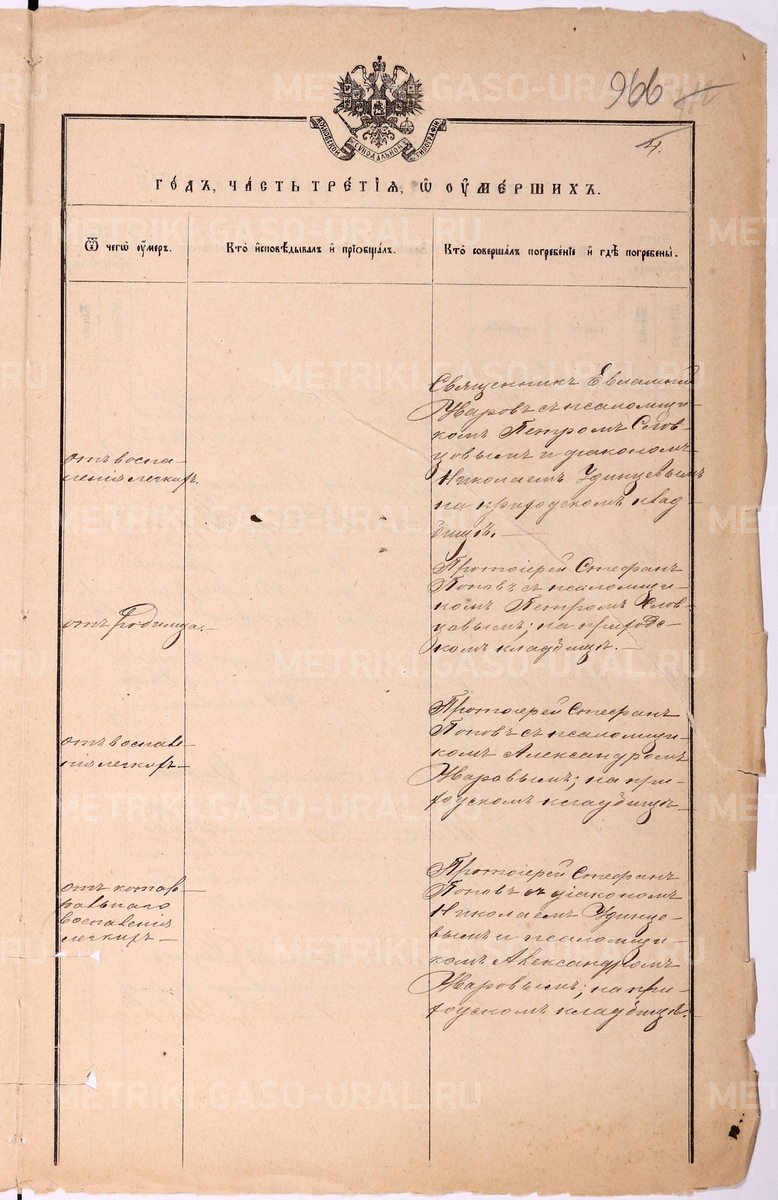 966
4.
МОСКОВСКОЙ СѴНОДАЛЬНОЙ ТИПОГРАФІИ
ГО́ДЪ, ЧА́СТЬ ТРЕ́ТІѦ, Ѡ҆ ОУ҆МЕ́РШИХЪ.
Ѿ чегѡ̀ оу҆́мер.
Кто̀ и҆сповѣ́дывалъ и҆ прїѡбща́лъ.
Кто̀ соверша́лъ погребе́нїе и҆ гдѣ̀ погребены̀.
отъ воспа-
ленія легкихъ.
Священникъ Евлампій
Уваровъ съ псаломщи-
комъ Петромъ Слов-
цовымъ и діакономъ
Николаемъ Удинцевымъ
на приходскомъ клад-
бищѣ.—
отъ Родимца.—
Протоіерей Стефанъ
Поповъ съ псаломщи-
комъ Петромъ Слов-
цовымъ; на приходс-
комъ кладбищѣ.—
отъ воспале-
нія легкихъ—
Протоіерей Стефанъ
Поповъ съ псаломщи-
комъ Александромъ
Уваровымъ; на при-
ходскомъ кладбищѣ—
отъ катар-
ральнаго
воспаленія
легкихъ—
Протоіерей Стефанъ
Поповъ съ діакономъ
Николаемъ Удинце-
вымъ и псаломщи-
комъ Александромъ
Уваровымъ; на при-
ходскомъ кладбищѣ.
METRIKI.GASO-URAL.RU